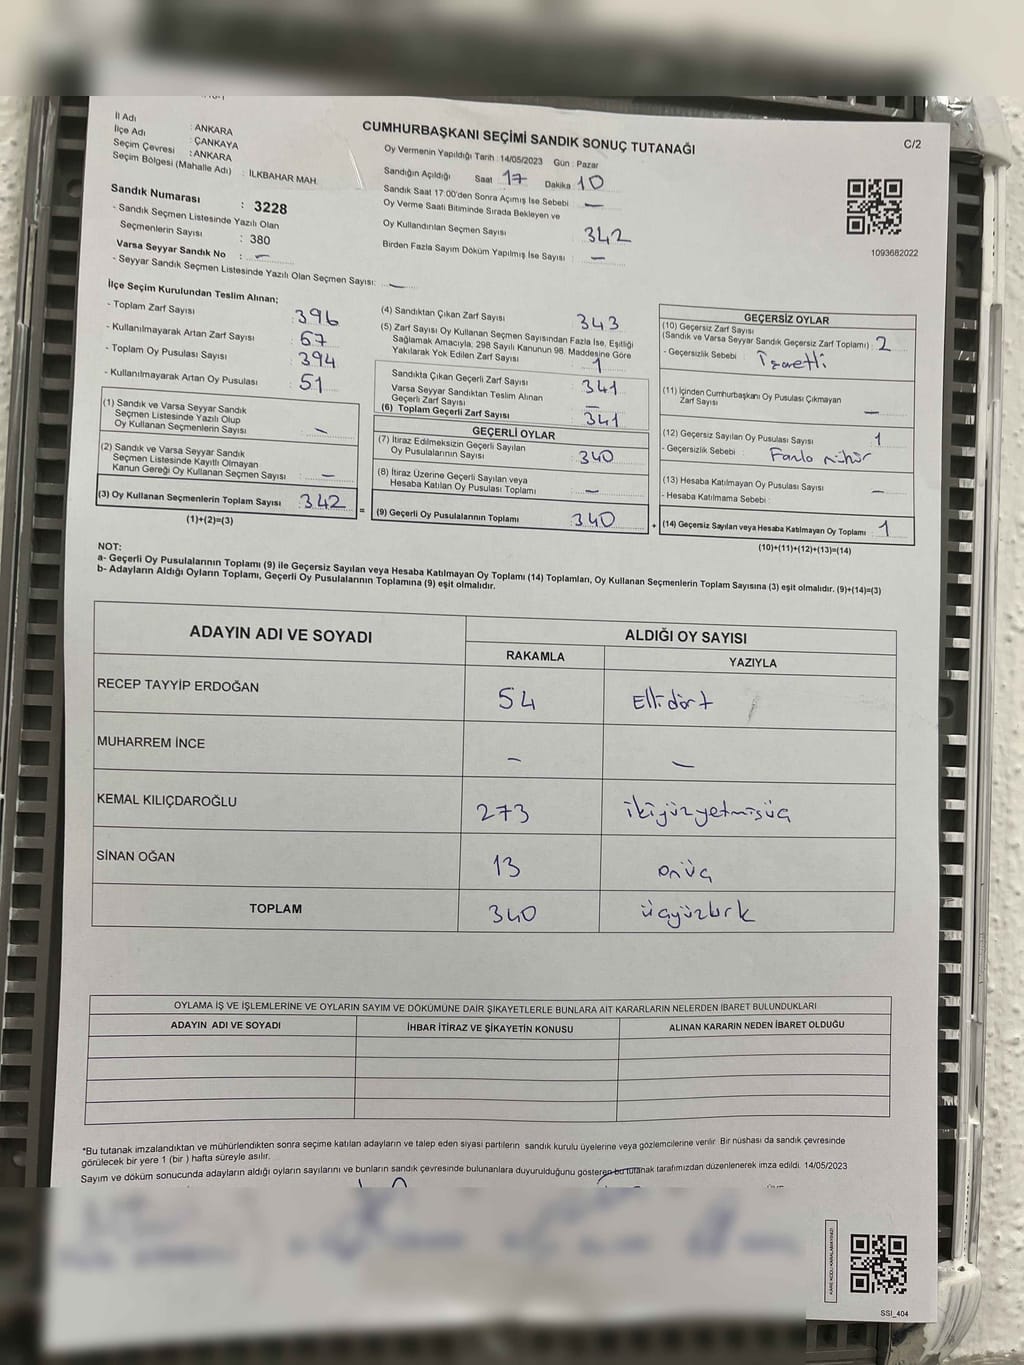 C/2
CUMHURBAŞKANI SEÇİMİ SANDIK SONUÇ TUTANAĞI
İl Adı : ANKARA
İlçe Adı : ÇANKAYA
Seçim Çevresi : ANKARA
Seçim Bölgesi (Mahalle Adı) : İLKBAHAR MAH.
Sandık Numarası : 3228
- Sandık Seçmen Listesinde Yazılı Olan
Seçmenlerin Sayısı : 380
Varsa Seyyar Sandık No : —
- Seyyar Sandık Seçmen Listesinde Yazılı Olan Seçmen Sayısı: —
Oy Vermenin Yapıldığı Tarih : 14/05/2023 Gün : Pazar
Sandığın Açıldığı Saat 17 Dakika 10
Sandık Saat 17:00'den Sonra Açımış İse Sebebi —
Oy Verme Saati Bitiminde Sırada Bekleyen ve
Oy Kullandırılan Seçmen Sayısı 342
Birden Fazla Sayım Döküm Yapılmış İse Sayısı : —
1093682022
İlçe Seçim Kurulundan Teslim Alınan;
- Toplam Zarf Sayısı : 396
- Kullanılmayarak Artan Zarf Sayısı : 67
- Toplam Oy Pusulası Sayısı : 394
- Kullanılmayarak Artan Oy Pusulası : 51
(1) Sandık ve Varsa Seyyar Sandık
Seçmen Listesinde Yazılı Olup
Oy Kullanan Seçmenlerin Sayısı : —
(2) Sandık ve Varsa Seyyar Sandık
Seçmen Listesinde Kayıtlı Olmayan
Kanun Gereği Oy Kullanan Seçmen Sayısı : —
(3) Oy Kullanan Seçmenlerin Toplam Sayısı : 342
(1)+(2)=(3)
=
(4) Sandıktan Çıkan Zarf Sayısı : 343
(5) Zarf Sayısı Oy Kullanan Seçmen Sayısından Fazla İse, Eşitliği
Sağlamak Amacıyla, 298 Sayılı Kanunun 98. Maddesine Göre
Yakılarak Yok Edilen Zarf Sayısı : 1
Sandıkta Çıkan Geçerli Zarf Sayısı : 341
Varsa Seyyar Sandıktan Teslim Alınan
Geçerli Zarf Sayısı : —
(6) Toplam Geçerli Zarf Sayısı : 341
GEÇERLİ OYLAR
(7) İtiraz Edilmeksizin Geçerli Sayılan
Oy Pusulalarının Sayısı : 340
(8) İtiraz Üzerine Geçerli Sayılan veya
Hesaba Katılan Oy Pusulası Toplamı : —
(9) Geçerli Oy Pusulalarının Toplamı : 340
+
GEÇERSİZ OYLAR
(10) Geçersiz Zarf Sayısı
(Sandık ve Varsa Seyyar Sandık Geçersiz Zarf Toplamı) : 2
- Geçersizlik Sebebi : İşaretli
(11) İçinden Cumhurbaşkanı Oy Pusulası Çıkmayan
Zarf Sayısı : —
(12) Geçersiz Sayılan Oy Pusulası Sayısı : 1
- Geçersizlik Sebebi : Fazla mühür
(13) Hesaba Katılmayan Oy Pusulası Sayısı : —
- Hesaba Katılmama Sebebi :
(14) Geçersiz Sayılan veya Hesaba Katılmayan Oy Toplamı : 1
(10)+(11)+(12)+(13)=(14)
NOT:
a- Geçerli Oy Pusulalarının Toplamı (9) ile Geçersiz Sayılan veya Hesaba Katılmayan Oy Toplamı (14) Toplamları, Oy Kullanan Seçmenlerin Toplam Sayısına (3) eşit olmalıdır. (9)+(14)=(3)
b- Adayların Aldığı Oyların Toplamı, Geçerli Oy Pusulalarının Toplamına (9) eşit olmalıdır.
ADAYIN ADI VE SOYADI ALDIĞI OY SAYISI
RAKAMLA YAZIYLA
RECEP TAYYİP ERDOĞAN 54 Ellidört
MUHARREM İNCE — —
KEMAL KILIÇDAROĞLU 273 ikiyüzyetmişüç
SİNAN OĞAN 13 onüç
TOPLAM 340 üçyüzkırk
OYLAMA İŞ VE İŞLEMLERİNE VE OYLARIN SAYIM VE DÖKÜMÜNE DAİR ŞİKAYETLERLE BUNLARA AİT KARARLARIN NELERDEN İBARET BULUNDUKLARI
ADAYIN ADI VE SOYADI İHBAR İTİRAZ VE ŞİKAYETİN KONUSU ALINAN KARARIN NEDEN İBARET OLDUĞU
*Bu tutanak imzalandıktan ve mühürlendikten sonra seçime katılan adayların ve talep eden siyasi partilerin sandık kurulu üyelerine veya gözlemcilerine verilir. Bir nüshası da sandık çevresinde
görülecek bir yere 1 (bir ) hafta süreyle asılır.
Sayım ve döküm sonucunda adayların aldığı oyların sayılarını ve bunların sandık çevresinde bulunanlara duyurulduğunu gösteren bu tutanak tarafımızdan düzenlenerek imza edildi. 14/05/2023
SSI_404